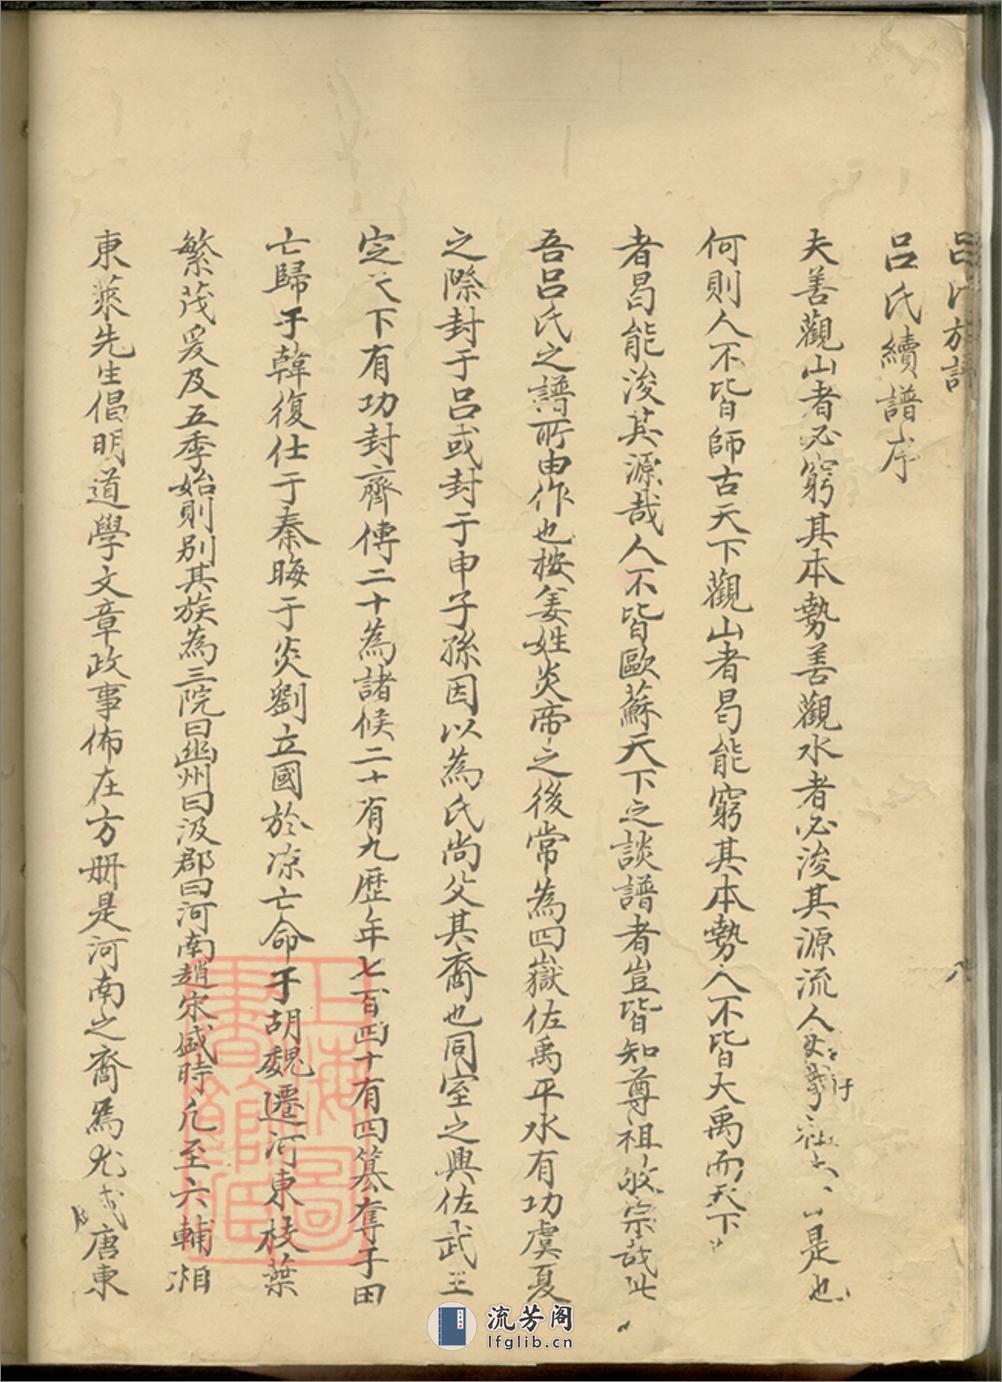 呂氏族譜
呂氏續譜序
夫善觀山者必窮其本勢善觀水者必浚其源流人是也
何則人不皆師古天下觀山者曷能窮其本勢人不皆大禹而天下
者曷能浚其源哉人不皆歐蘇天下之談譜者豈皆知尊祖敬宗哉此
吾呂氏之譜所由作也按姜姓炎帝之後常為四嶽佐禹平水有功虞夏
之際封于呂或封于申子孫因以為氏尚父其裔也同室之興佐武王
定天下有功封齊傳二十為諸侯二十有九歷年七百四十有四篡奪于田
亡歸于韓復仕于秦晦于炎劉立國於凉亡命于胡魏遷河東枝葉
繁茂爰及五季始則别其族為三院曰幽州曰汲郡曰河南趙宋盛時凢至六輔相
東萊先生倡明道學文章政事佈在方冊是河南之裔焉唐東
八
上海圖書館藏
流芳阁
lfglib.cn